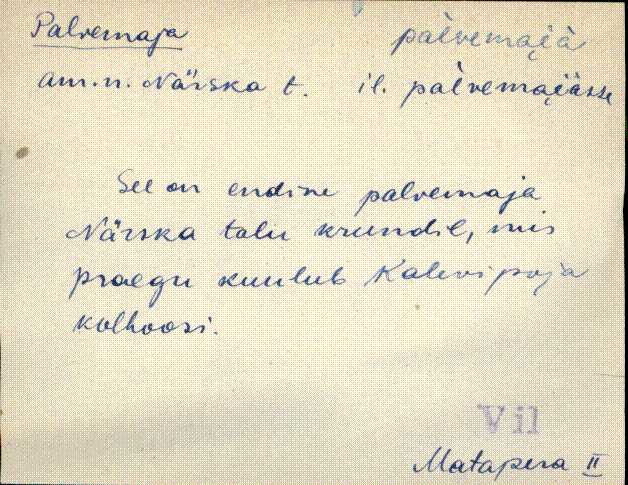 Palvemaja pàlvemai̯à
am.n. Närska t. il. pàlvemai̯àsse
See on endine palvemaja
Närska talu krundil, mis
praegu kuulub Kalevipoja
kolhoosi.
Vil
Matapera II